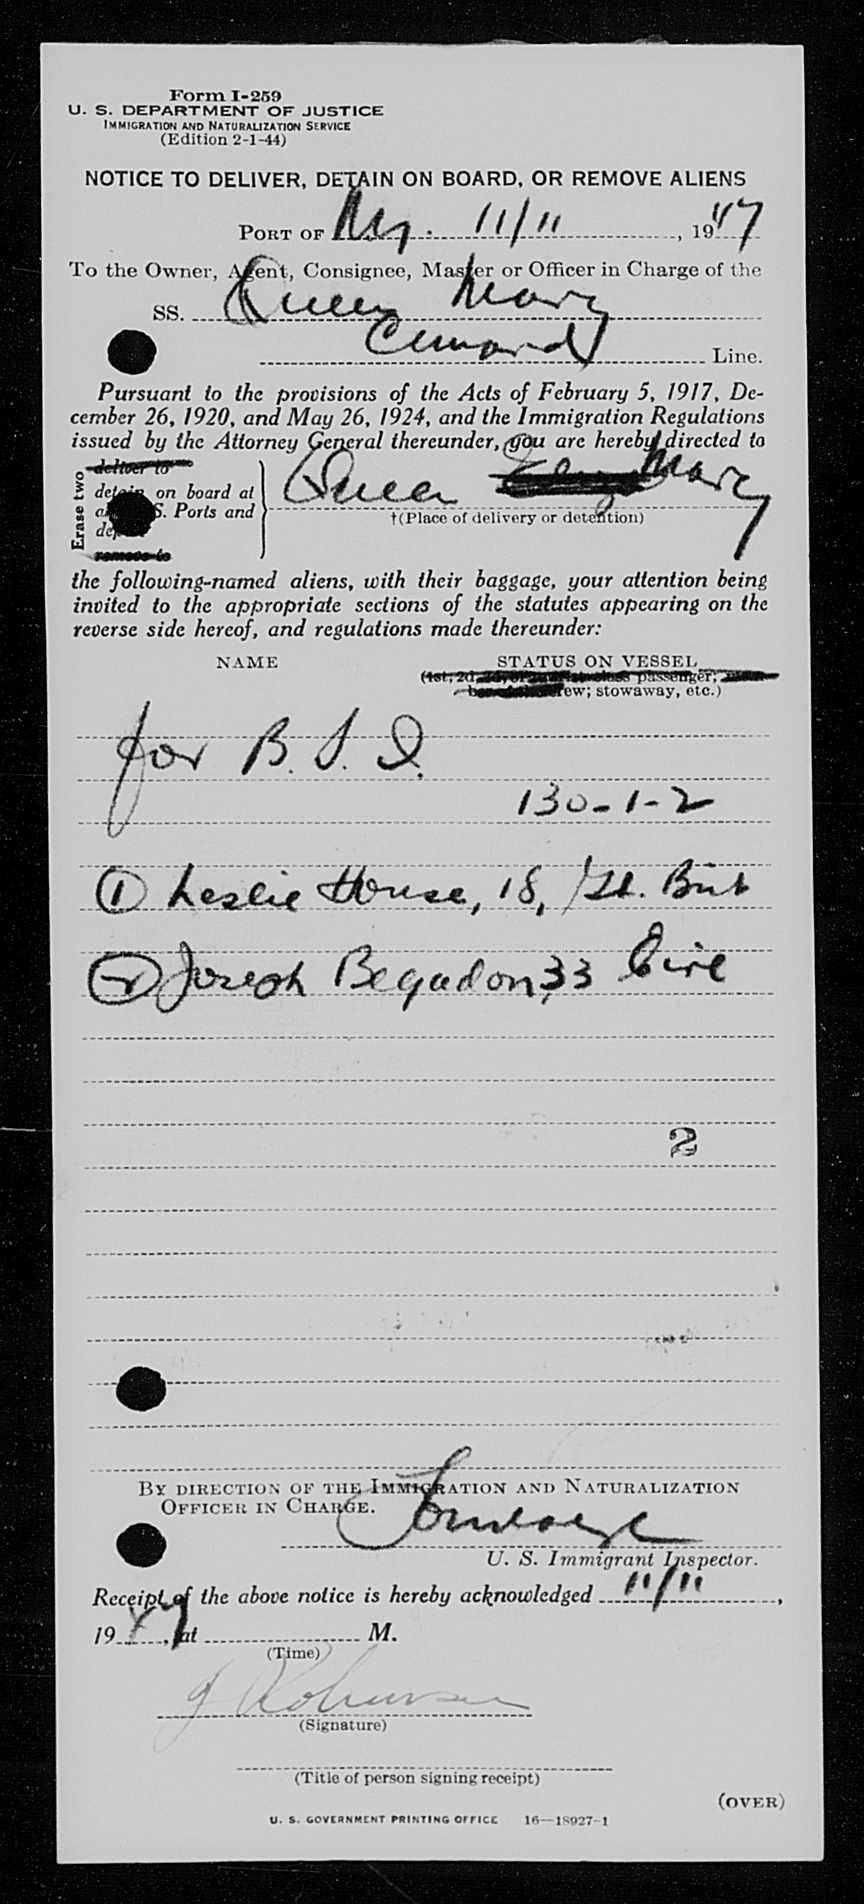 Form I-259
U. S. DEPARTMENT OF JUSTICE
IMMIGRATION AND NATURALIZATION SERVICE
(Edition 2-1-44)
NOTICE TO DELIVER, DETAIN ON BOARD, OR REMOVE ALIENS
PORT OF N.Y. 11/11, 1947
To the Owner, Agent, Consignee, Master or Officer in Charge of the
SS. Queen Mary
Cunard Line.
Pursuant to the provisions of the Acts of February 5, 1917, De-
cember 26, 1920, and May 26, 1924, and the Immigration Regulations
issued by the Attorney General thereunder, you are hereby directed to
Erase two
deliver to
detain on board at
S. Ports and
remove to
Queen Mary
†(Place of delivery or detention)
the following-named aliens, with their baggage, your attention being
invited to the appropriate sections of the statutes appearing on the
reverse side hereof, and regulations made thereunder:
NAME STATUS ON VESSEL
(1st, 2d, passenger;
crew; stowaway, etc.)
for B. S. I.
130-1-2
① Leslie House, 18, Gt. Brit
② Joseph Begadon, 33 Eire
2
BY DIRECTION OF THE IMMIGRATION AND NATURALIZATION
OFFICER IN CHARGE.
U. S. Immigrant Inspector.
Receipt of the above notice is hereby acknowledged 11/11,
1947, at M.
(Time)
(Signature)
(Title of person signing receipt)
(OVER)
U. S. GOVERNMENT PRINTING OFFICE 16—18927-1